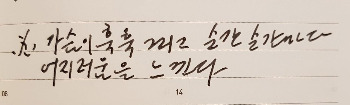 가슴이 훅훅 그리고 순간 순간마다
어지러움을 느낀다
14